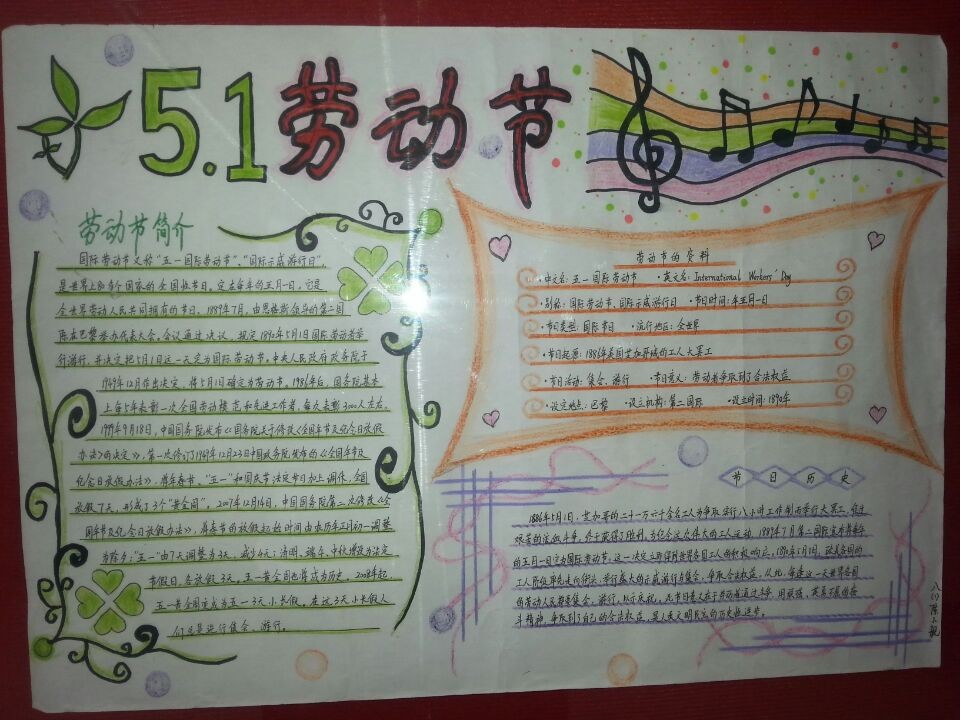 5.1劳动节
劳动节简介
国际劳动节又称“五一国际劳动节”、“国际示威游行日”，
是世界上80多个国家的全国性节日。定在每年的五月一日。它是
全世界劳动人民共同拥有的节日。1889年7月，由恩格斯领导的第二国
际在巴黎举办代表大会。会议通过决议，规定1890年5月1日国际劳动者举
行游行，并决定把5月1日这一天定为国际劳动节。中央人民政府政务院于
1949年12月作出决定，将5月1日确定为劳动节。1989年后，国务院基本
上每5年表彰一次全国劳动模范和先进工作者，每次表彰3000人左右。
1999年9月18日，中国国务院发布《国务院关于修改《全国年节及纪念日放假
办法》的决定》，第一次修订1949年12月23日中国政务院发布的《全国年节及
纪念日放假办法》，将春节、“五一”和国庆节法定节日加上调休，全国
放假7天，形成了3个“黄金周”，2007年12月14日，中国国务院第二次修改《全
国年节及纪念日放假办法》，将春节的放假起始时间由农历正月初一调整
为除夕；“五一”由7天调整为3天，减少4天；清明、端午、中秋增设为法定
节假日，各放假3天，五一黄金周也将成为历史。2008年起，
五一黄金周变成为五一3天小长假。在这3天小长假人
们总是进行集会、游行。
劳动节的资料
·中文名：五一国际劳动节 ·英文名：International Workers' Day
·别称：国际劳动节、国际示威游行日 ·节日时间：年五月一日
·节日类型：国际节日 ·流行地区：全世界
·节日起源：1886年美国芝加哥城的工人大罢工
·节日活动：集会、游行 ·节日意义：劳动者争取到了合法权益
·设定地点：巴黎 ·设立机构：第二国际 ·设立时间：1890年
节日历史
1886年5月1日，芝加哥的二十一万六千余名工人为争取实行八小时工作制而举行大罢工，经过
艰苦的流血斗争，终于获得了胜利。为纪念这次伟大的工人运动，1889年7月第二国际宣布将每年
的五月一日定为国际劳动节。这一决定立即得到世界各国工人的积极响应。1890年5月1日，欧美各国的
工人阶级率先走向街头，举行盛大的示威游行与集会，争取合法权益。从此，每逢这一天世界各国
的劳动人民都要集会、游行，以示庆祝。
斗精神，争取到了自己的合法权益，是人类文明民主的历史性进步。